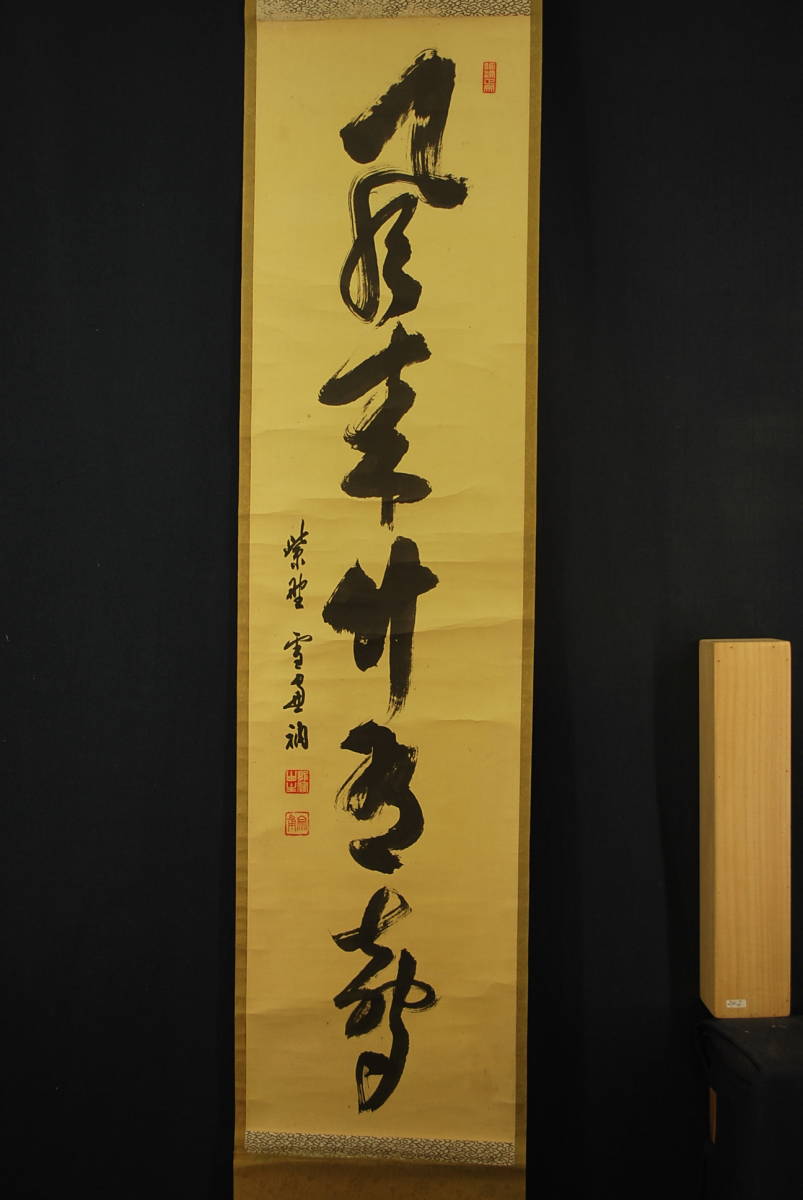 風来竹有聲
紫野 雪窓衲